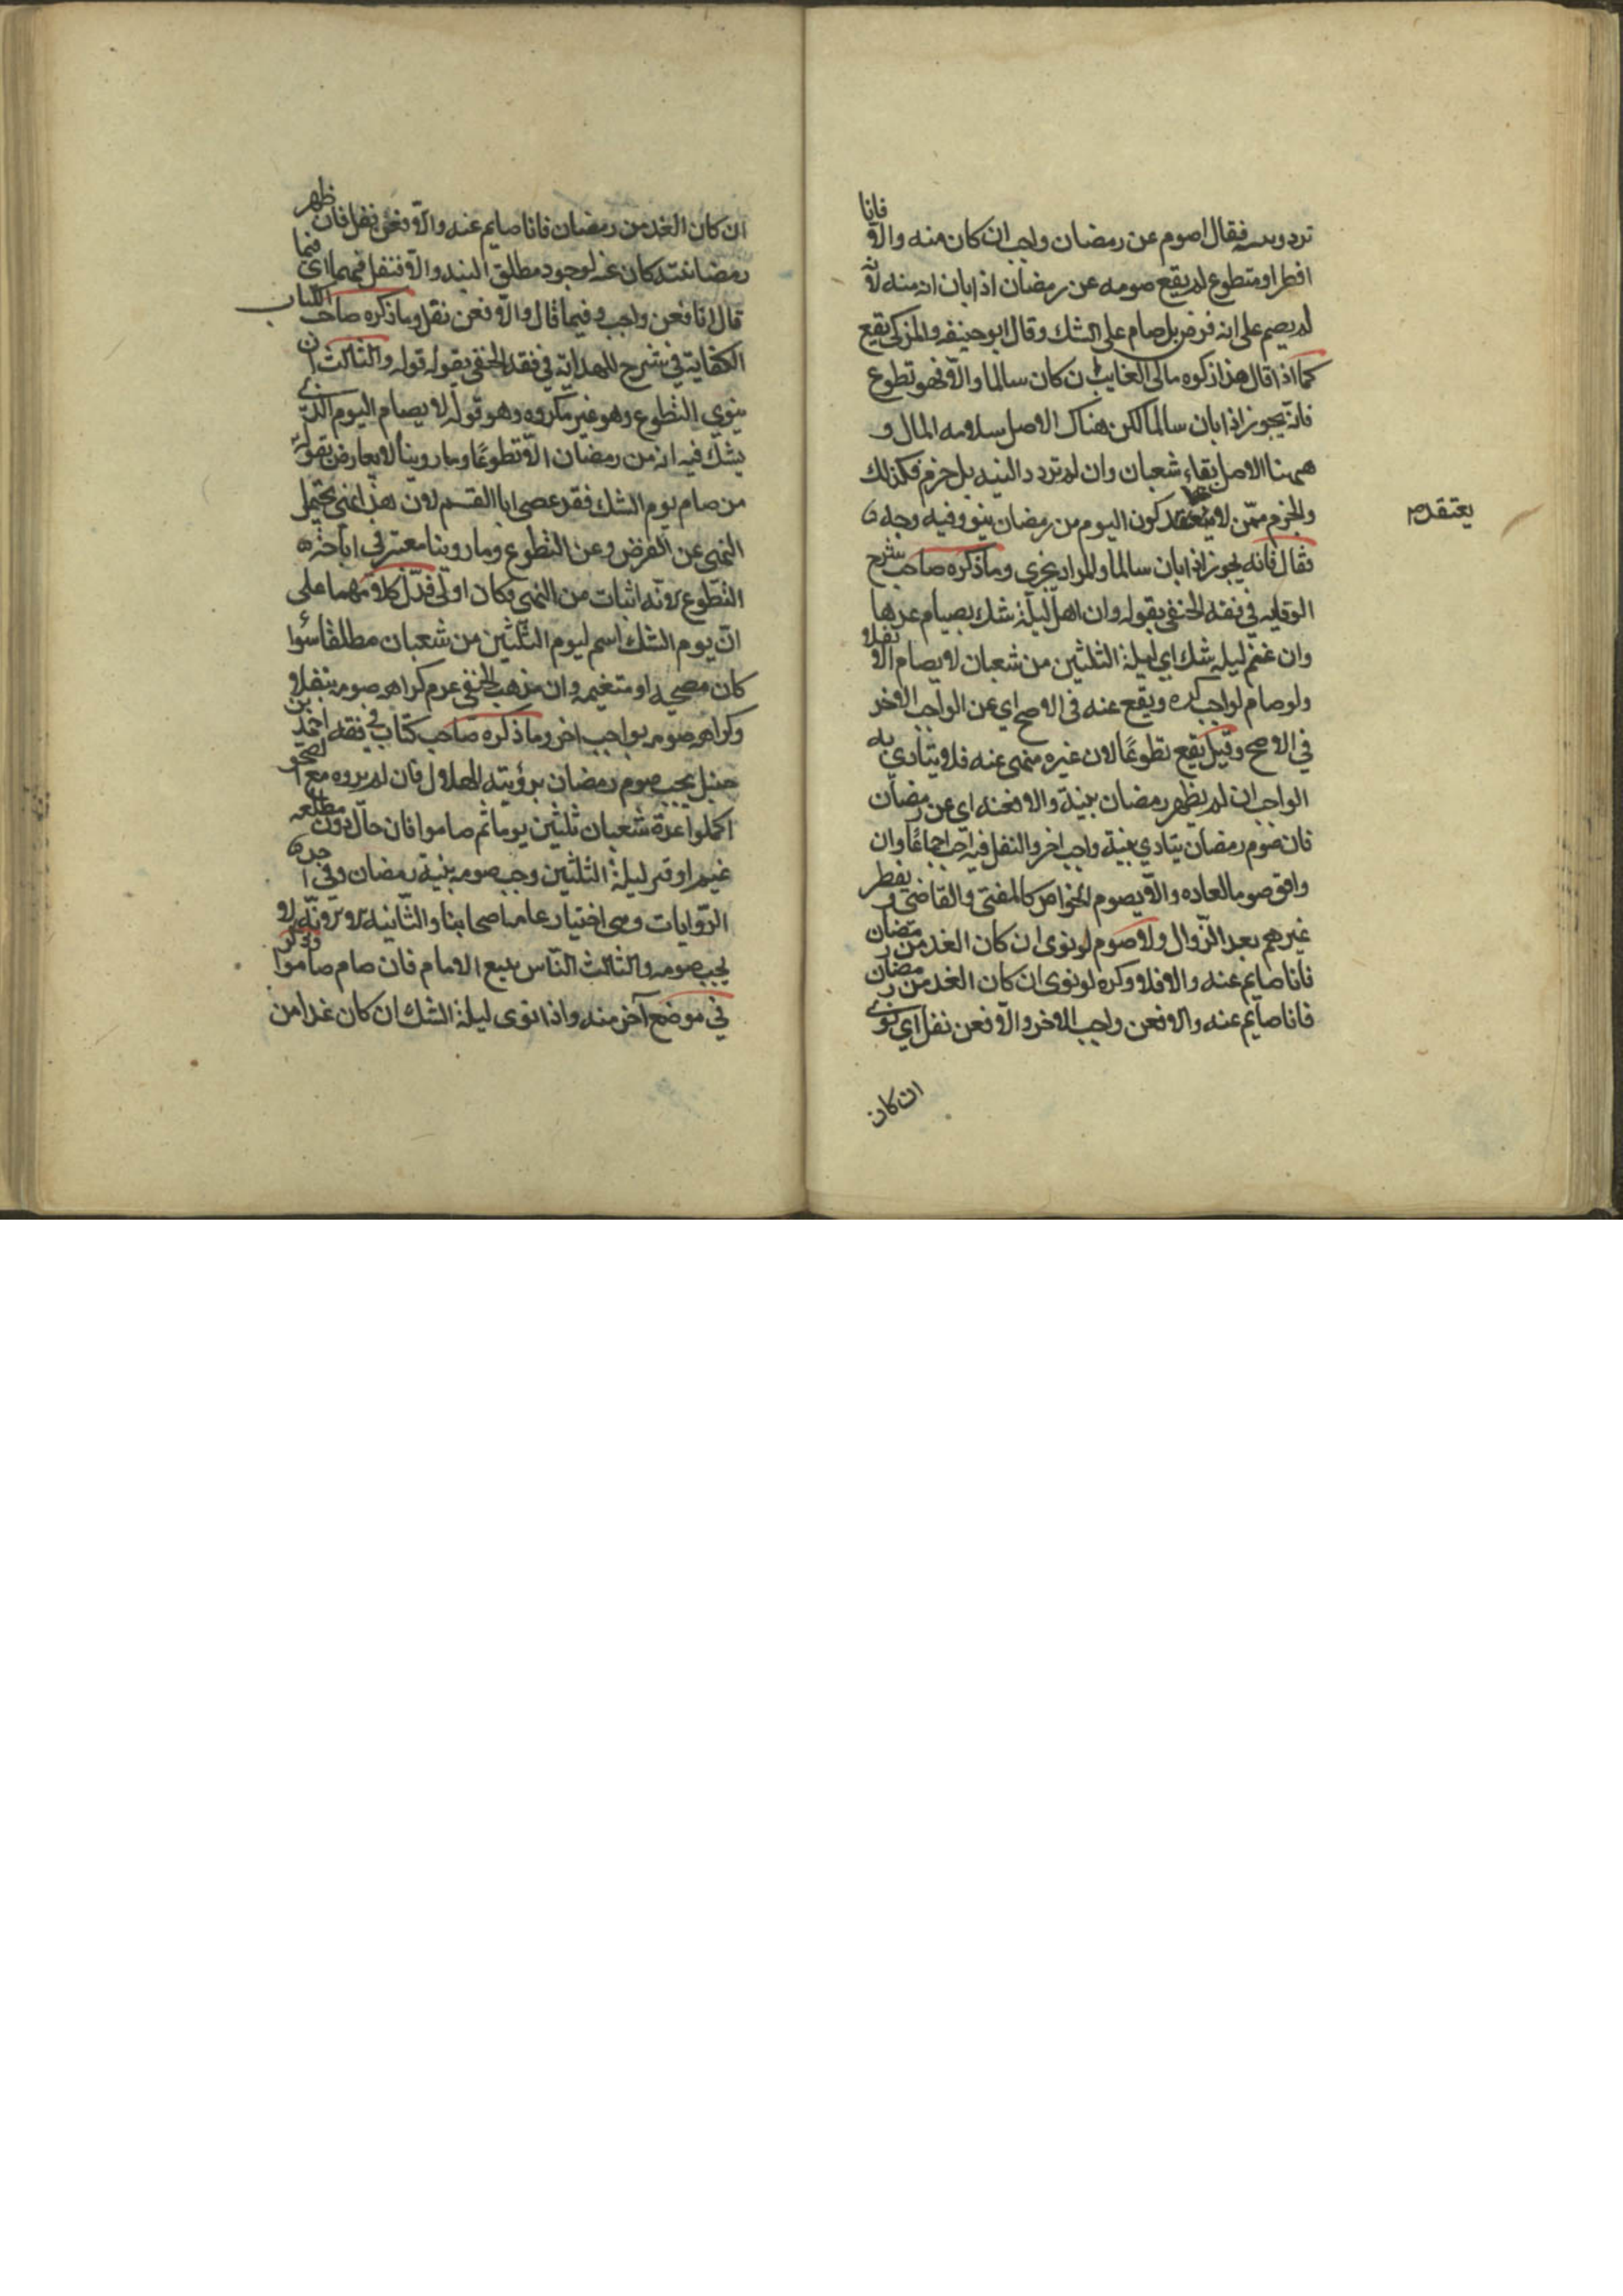 تردد وبينه فقال اصوم عن رمضان واجب ان كان منه والا فانا
افطر او متطوع لم يقع صومه عن رمضان اذا بان انه منه لانه
لم يصم على انه فرض بل صام على الشك وقال ابو حنيفه والمزكي يقع
كما اذا قال هذا زكوه مالي الغايب ان كان سالما والا فهو تطوع
فانه يجوز اذا بان سالما لكن هناك الاصل سلامه المال و
ههنا الاصل بقاء شعبان وان لم تردد النيه بل جزم فكذلك
والجزم ممن لا يعتقد كون اليوم من رمضان
يعتقده
فقال فانه يجوز اذا بان سالما والمراد يجزي وما ذكره صاحب شرح
الوقايه في فقه الحنفي بقوله وان اهل ليلة شك بصيام
وان غم ليله شك اي ليلة الثلثين من شعبان لا يصام الا نفلا
ولو صام لواجب كره ويقع عنه في الاصح اي عن الواجب الاخر
في الاصح وقيل يقع تطوعًا لان غيره منهى عنه فلا يتادي به
الواجب ان لم يظهر رمضان بنية والا فعنه اي عن رمضان
فان صوم رمضان يتادي بنية واجب اخر والنفل فيه احب اجماعًا وان
وافق صوما لعاده والا يصوم الخواص كالمفتي والقاضي ويفطر
غيرهم بعد الزوال ولا صوم لو نوى ان كان الغد من رمضان
فانا صايم عنه والا فلا وكره لو نوى ان كان الغد من رمضان
فانا صايم عنه والا فعن واجب الاخر والا فعن نفل اي نوى
ان كان
ان كان الغد من رمضان فانا صايم عنه والا فعن نفل فان ظهر
رمضانيته كان عنه لوجود مطلق النيه والا فنفل فيهما اي فيما
قال انا فعن واجب وفيما قال والا فعن نفل وما ذكره صاحب الكتاب
الكفاية في شرح للهداية في فقه الحنفي بقوله قوله والثالث ان
ينوي التطوع وهو غير مكروه وهو قوله لا يصام اليوم الذي
يشك فيه انه من رمضان الا تطوعًا وما روينا لا يعارض بقوله
من صام يوم الشك فقد عصى ابا القسم لان هذا نهي يحتمل
النهى عن الفرض وعن التطوع وما روينا معتبر في اباحته
التطوع لانه اثبات من النهي فكان اولى فدل كلامهما على
ان يوم الشك اسم ليوم الثلثين من شعبان مطلقا سوا
كان مصحيه او متغيمه وان مذهب الحنفي عدم كراهه صومه بنفل و
وكراهه صومه بواجب اخر وما ذكره صاحب كتاب في فقه احمد بن
حنبل يجب صوم رمضان برؤيته الهلال فان لم يروه مع الصحو
اكملوا عدة شعبان ثلثين يوما ثم صاموا فان حال دون مطلعه
غيم او قتر ليلة الثلثين وجب صومه بنية رمضان وفي احدى
الروايات وهي اختيار عامه اصحابنا والثانيه لا
يجب صومه والثالث الناس تبع الامام فان صام صاموا وذكر
في موضع آخر منه واذا نوى ليلة الشك ان كان غدا من